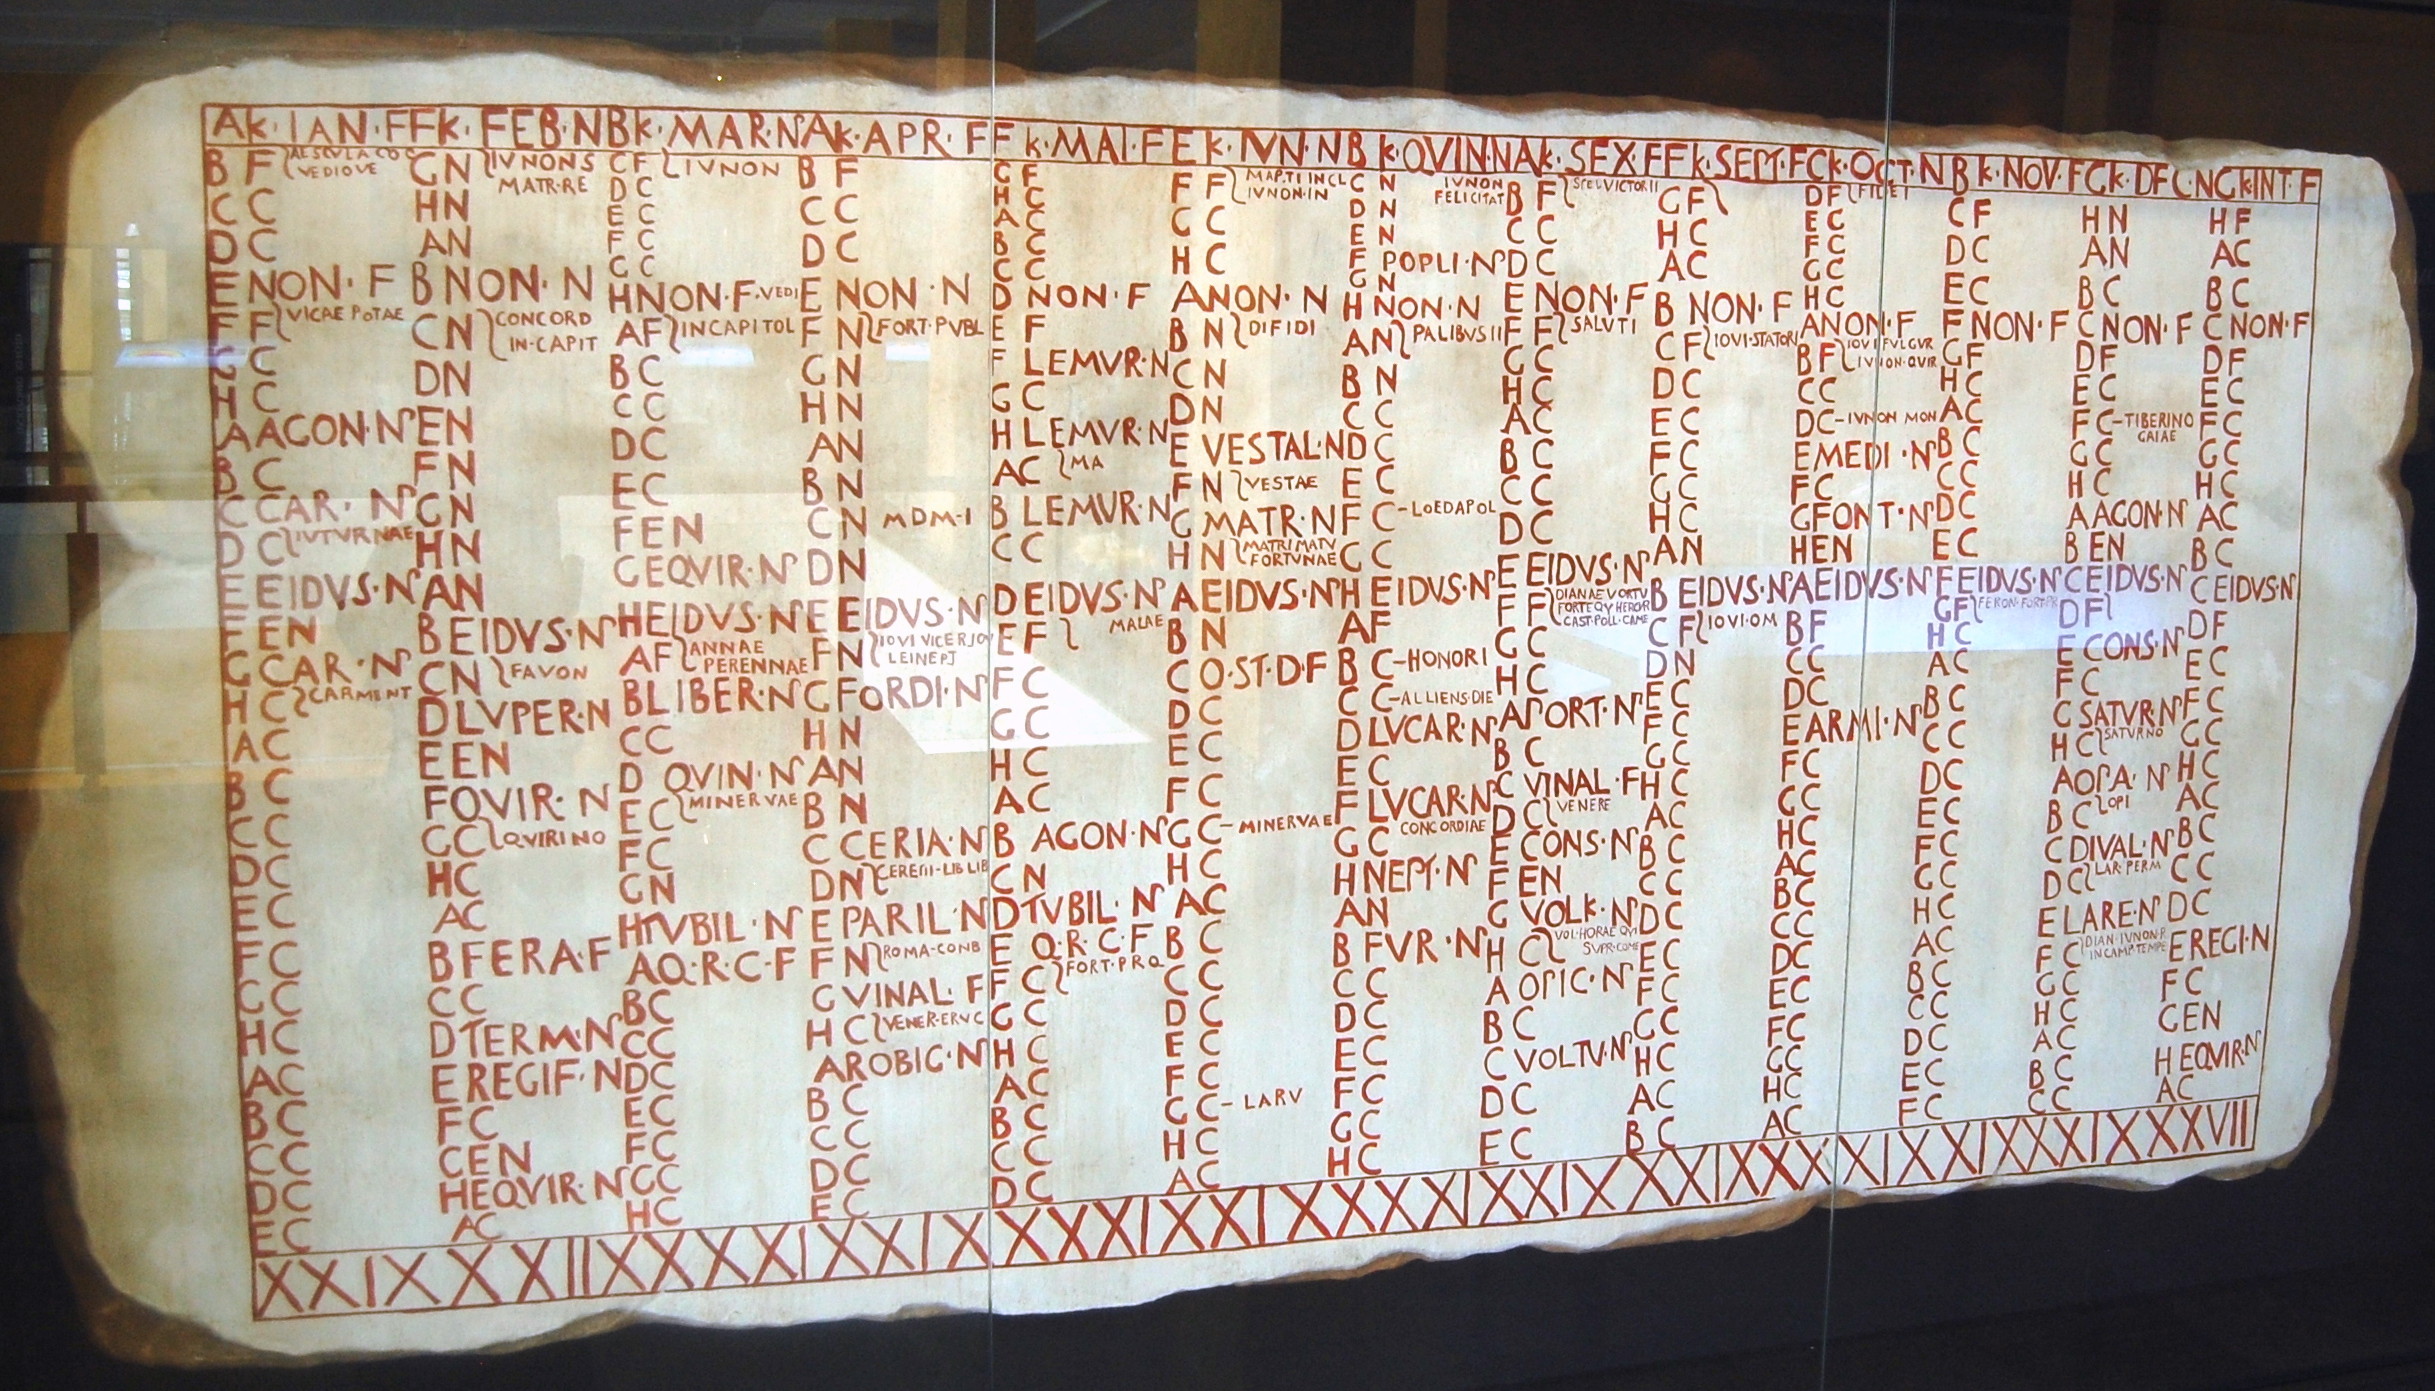 Ak·IAN·F Fk·FEB·N Bk·MAR·N Ak·APR·F Fk·MAI·F Ek·IVN·N Bk·QVIN·N Ak·SEX·F Fk·SEPT·F Ck·OCT·N Bk·NOV·F Gk·DEC·N Gk·INT·F
B F AESCVLA·CO
VEDIOVE
C C
D C
E NON·F
F F VICAE POTAE
G C
H C
A AGON·N
B C
C CAR·N
D C IVTVRNAE
E EIDVS·N
F EN
G CAR·N
H C CARMENT
A C
B C
C C
D C
E C
F C
G C
H C
A C
B C
C C
D C
E C
G N IVNON S
MATR·RE
H N
A N
B NON·N
C N CONCORD
IN·CAPIT
D N
E N
F N
G N
H N
A N
B EIDVS·N
C N FAVON
D LVPER·N
E EN
F QVIR·N
G C QVIRINO
H C
A C
B FERA·F
C C
D TERM·N
E REGIF·N
F C
G EN
H EQVIR·N
A C
C F IVNON
D C
E C
F C
G C
H NON·F·VEDI
A F INCAPITOL
B C
C C
D C
E C
F EN
G EQVIR·N
H EIDVS·N
A F ANNAE
PERENNAE
B LIBER·N
C C
D QVIN·N
E C MINERVAE
F C
G N
H TVBIL·N
A Q·R·C·F
B C
C C
D C
E C
F C
G C
H C
B F
C C
D C
E NON·N
F N FORT·PVBL
G N
H N
A N
B N
C N MDM·I
D N
E EIDVS·N
F N IOVI VICERIOV
LEINEPI
G FORDI·N
H N
A N
B N
C CERIA·N
D N CERERII·LIB LIB
E PARIL·N
F N ROMA·CONB
G VINAL·F
H C VENER·ERVC
A ROBIG·N
B C
C C
D C
E C
G F
H C
A C
B C
C C
D NON·F
E F
F LEMVR·N
G C
H LEMVR·N
A C MA
B LEMVR·N
C C
D EIDVS·N
E F MAIAE
F C
G C
H C
A C
B AGON·N
C N
D TVBIL·N
E Q·R·C·F
F C FORT·PRQ
G C
H C
A C
B C
C C
D C
F F MAP·TI INCL
IVNON·IN
G C
H C
A NON·N
B N DIFIDI
C N
D N
E VESTAL·N
F N VESTAE
G MATR·N
H N MATRI MATV
FORTVNAE
A EIDVS·N
B N
C Q·ST·D·F
D C
E C
F C
G C–MINERVAE
H C
A C
B C
C C
D C
E C
F C
G C–LARV
H C
A C
C N
D N
E N
F POPLI·N
G N
H NON·N
A N PALIBVSII
B N
C C
D C
E C
F C–LOEDAPOL
G C
H EIDVS·N
A F
B C–HONORI
C C–ALLIENS·DIE
D LVCAR·N
E C
F LVCAR·N
G C CONCORDIAE
H NEPT·N
A N
B FVR·N
C C
D C
E C
F C
G C
H C
IVNON
FELICITAT
B F SPEI VICTORII
C C
D C
E NON·F
F F SALVTI
G C
H C
A C
B C
C C
D C
E EIDVS·N
F F DIANAE VORTV
FORTEQV HERQR
CAST·POLL·CAME
G C
H C
A PORT·N
B C
C VINAL·F
D C VENERE
E CONS·N
F EN
G VOLK·N
H C VOL·HORAE QVI
SVPR·COME
A OPIC·N
B C
C VOLTV·N
D C
E C
G F
H C
A C
B NON·F
C F IOVI·STATORI
D C
E C
F C
G C
H C
A N
B EIDVS·N
C F IOVI·OM
D N
E C
F C
G C
H C
A C
B C
C C
D C
E C
F C
G C
H C
A C
B C
D F FIDEI
E C
F C
G C
H C
A NON·F
B F IOVI FVLGVR
IVNON·QVIR
C C
D C–IVNON MON
E MEDI·N
F C
G FONT·N
H EN
A EIDVS·N
B F
C C
D C
E ARMI·N
F C
G C
H C
A C
B C
C C
D C
E C
F C
G C
H C
A C
C F
D C
E C
F NON·F
G F
H C
A C
B C
C C
D C
E C
F EIDVS·N
G F FERON·FORT·PR
H C
A C
B C
C C
D C
E C
F C
G C
H C
A C
B C
C C
D C
E C
F C
H N
A N
B C
C NON·F
D F
E C
F C–TIBERINO
GAIAE
G C
H C
A AGON·N
B EN
C EIDVS·N
D F
E CONS·N
F C
G SATVR·N
H C SATVRNO
A OPA·N
B C OPI
C DIVAL·N
D C LAR·PERM
E LARE·N
F C DIAN·IVNON·R
IN CAMP·TEMPE
G C
H C
A C
B C
C C
H F
A C
B C
C NON·F
D F
E C
F C
G C
H C
A C
B C
C EIDVS·N
D F
E C
F C
G C
H C
A C
B C
C C
D C
E REGI·N
F C
G EN
H EQVIR·N
A C
XXIX XXIIX XXXI XXIX XXXI XXIX XXXI XXIX XXIX XXXI XXIX XXIX XXVII